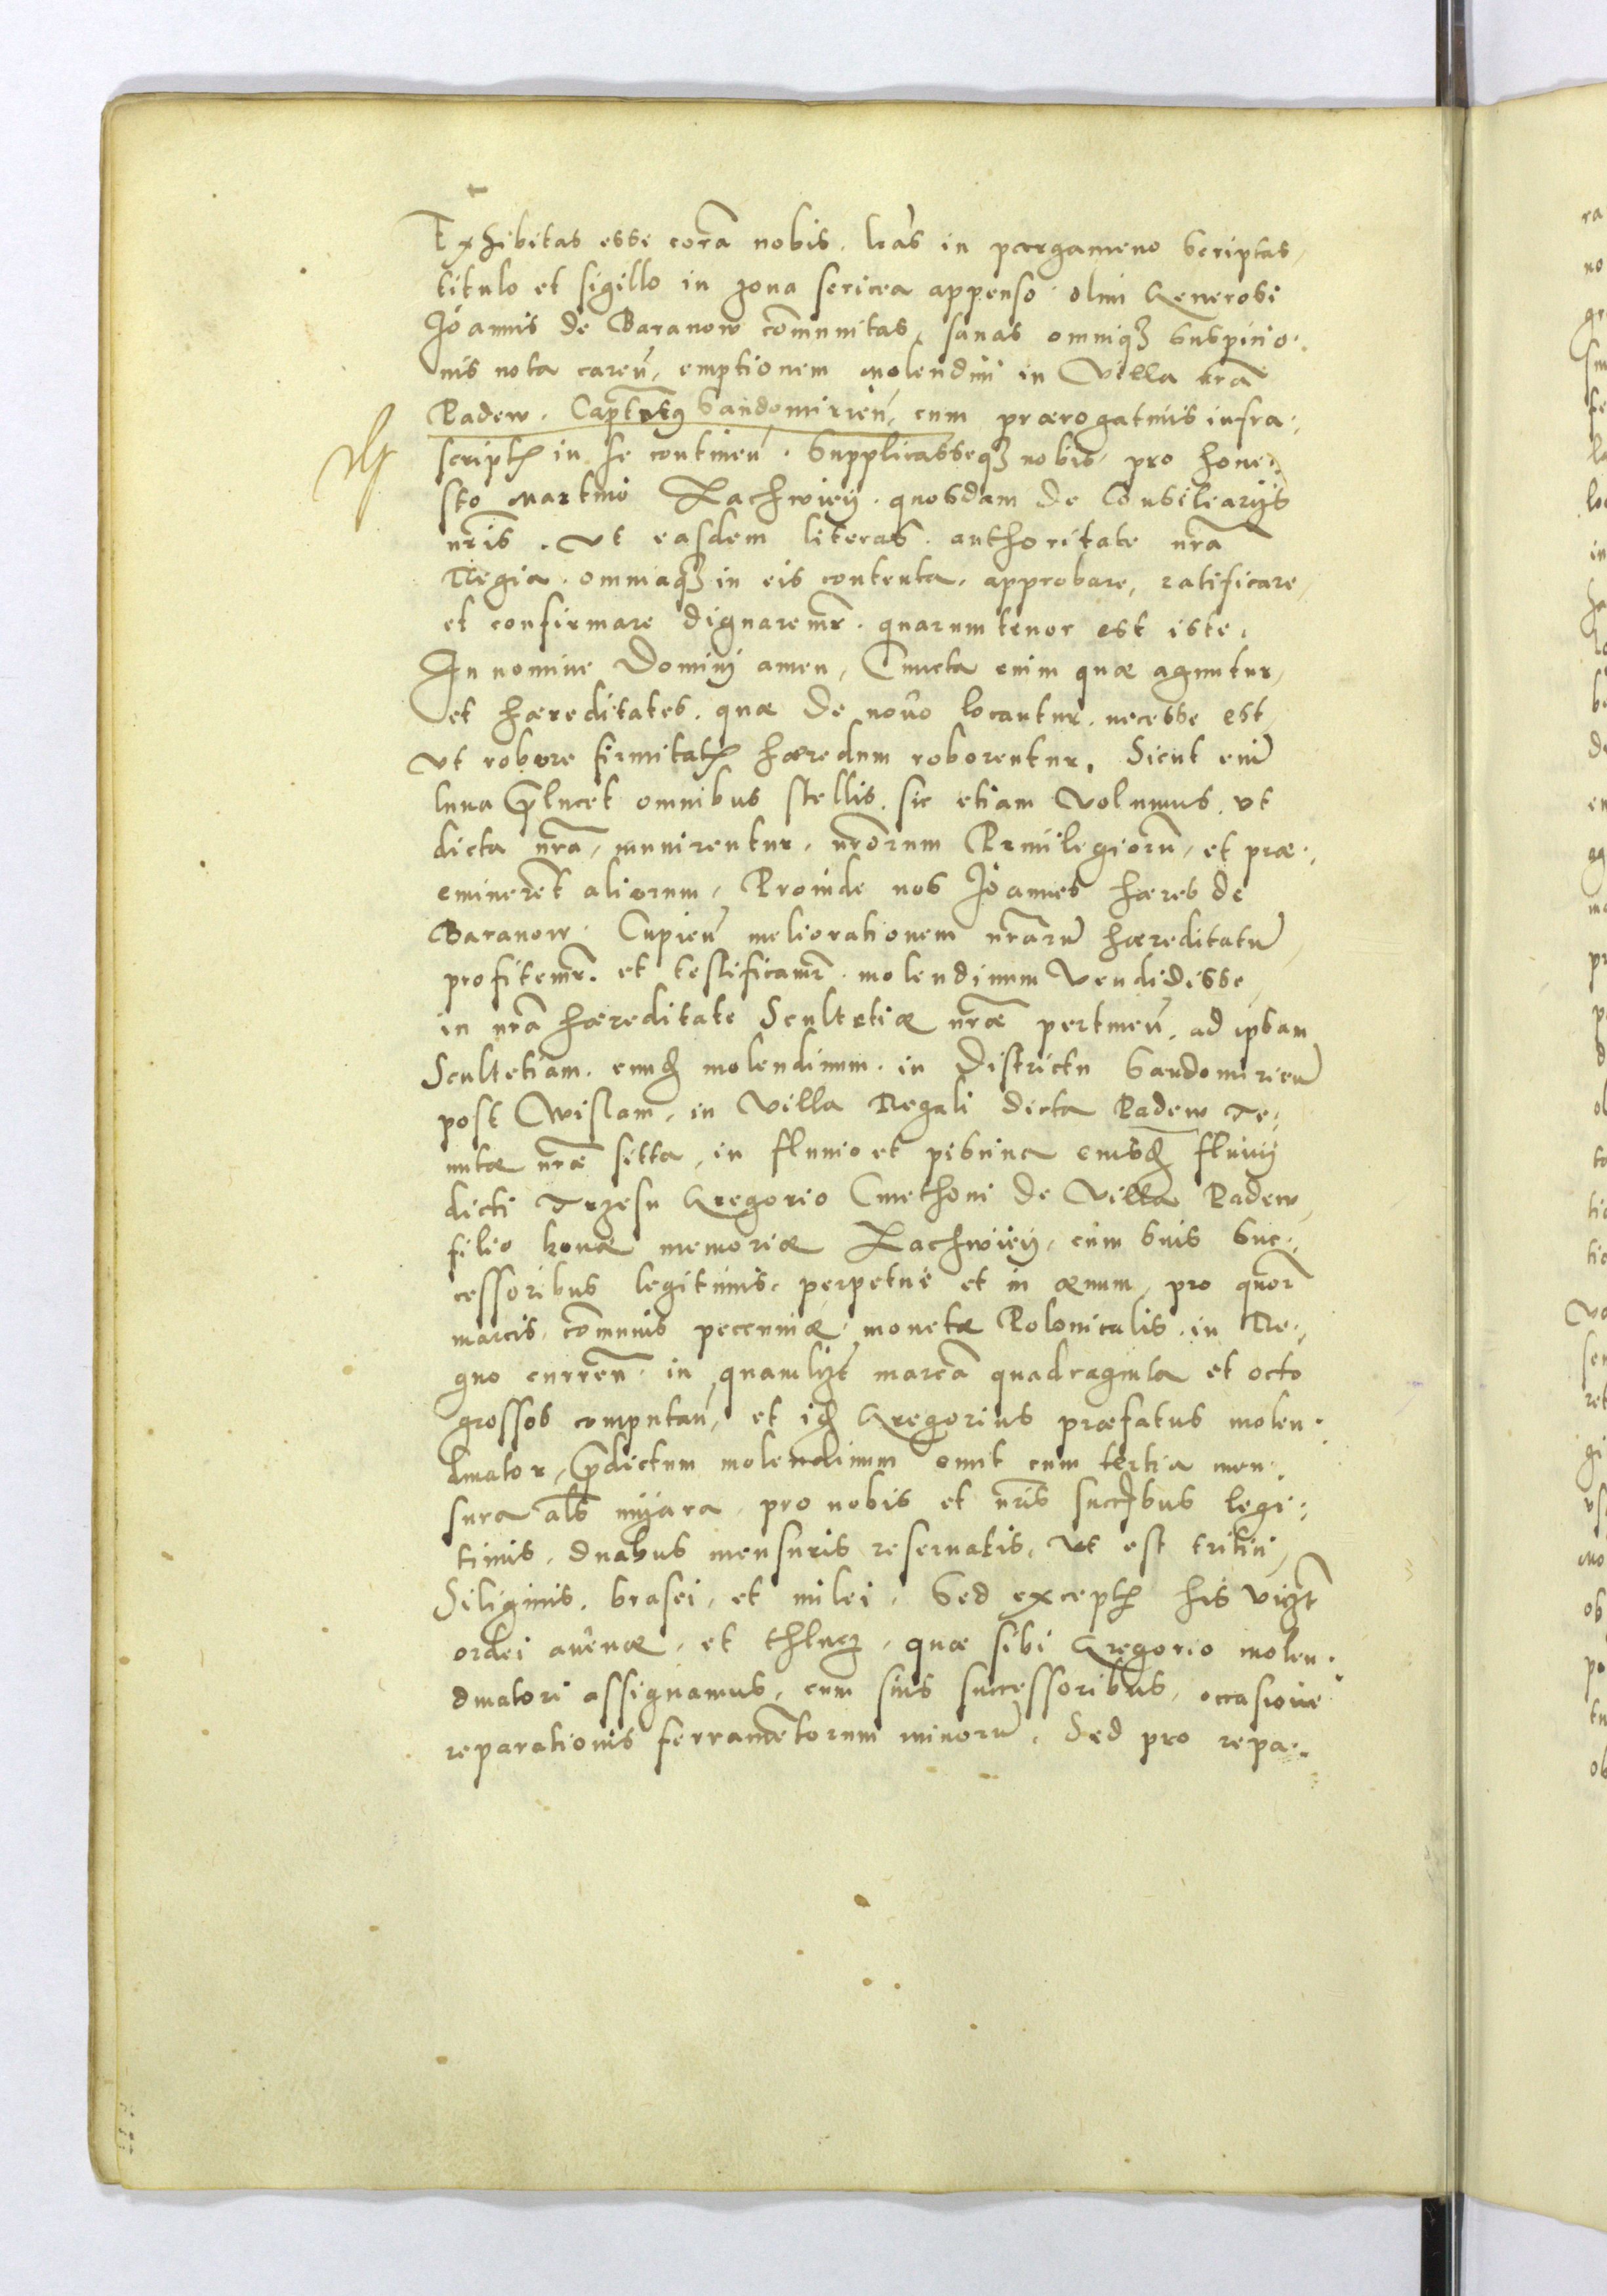 Exhibitas esse corã nobis. lr̃as in pergameno scriptas,
titulo et sigillo in zona sericea appenso. olim Generosi
Ioannis de Baranow com̃unitas, sanas omniqꝫ suspicio:
nis nota careñ, emptionem molendini in Villa nrã
Padew. Capt̃ntus Sandomirieñ, cum prærogatiuis infra:
scriptꝭ in se contineñ. Supplicasseqꝫ nobis pro hone:
sto Martino Lachwiey. quosdam de Consiliarijs
nr̃is. vt easdem literas. authoritate nrã
Regia. omniaqꝫ in eis contenta. approbare, ratificare,
et confirmare dignaremr̃. quarum tenor est iste.
In nomine Dominj amen, Cuncta enim quæ aguntur,
et hæreditates. quæ de nouo locantur. necesse est,
vt robore firmitatꝭ hæredum roborentur. Sicut enĩ
luna p̃lucet omnibus stellis. sic etiam volumus. vt
dicta nrã, munirentur. nrõrum Priuilegiorũ, et præ:
eminerẽt aliorum, Proinde nos Ioannes hæres de
Baranow. Cupieñ meliorationem nrãrũ hæreditatũ,
profitemr̃. et testificamr̃. molendinum vendidisse,
in nrã hæreditate Scultetiæ nrãe pertineñ. ad ipsam
Scultetiam. eundẽ molendinum. in Districtu Sandomirieñ
post Wislam, in Villa Regali dicta Padew Te:
nutæ nrãe sitta, in fluuio et piscina eiusdẽ fluuij
dicti Trzesn Gregorio Cmethoni de Villa Padew,
filio bonæ memoriæ Lachwiey, cum suis suc:
cessoribus legitimis. perpetue et in æuum, pro quor̃
marcis. com̃unis pecuniæ. monetæ Polonicalis. in Re:
gno curreñ. in quamlibꝫ marcã quadraginta et octo
grossos computañ, et idẽ Gregorius præfatus molen:
dinator, p̃dictum molendinum emit cum tertia men:
sura al̃s myara. pro nobis et nr̃is succꝭbus legi:
timis. duabus mensuris reseruatis. vt est tritici,
Siliginis. brasei, et milei. Sed exceptꝭ his vidꝫ
ordei auenæ, et thlucz, quæ sibi Gregorio molen:
dinatori assignamus, cum suis successoribus, occasione
reparationis ferramẽtorum minorũ. Sed pro repa: